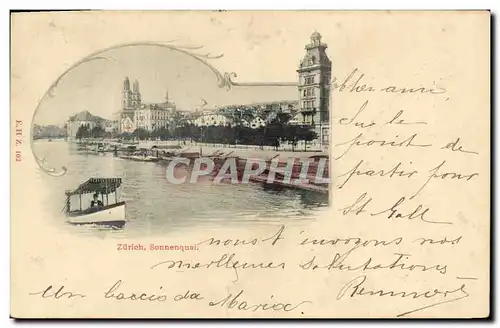 E.H.Z. 102
CPARAMA
Zürich, Sonnenquai.
cher ami,
Sur le
point de
partir pour
St Gall
nous t'envoyons nos
meilleures Salutations,
Un baccio da Maria